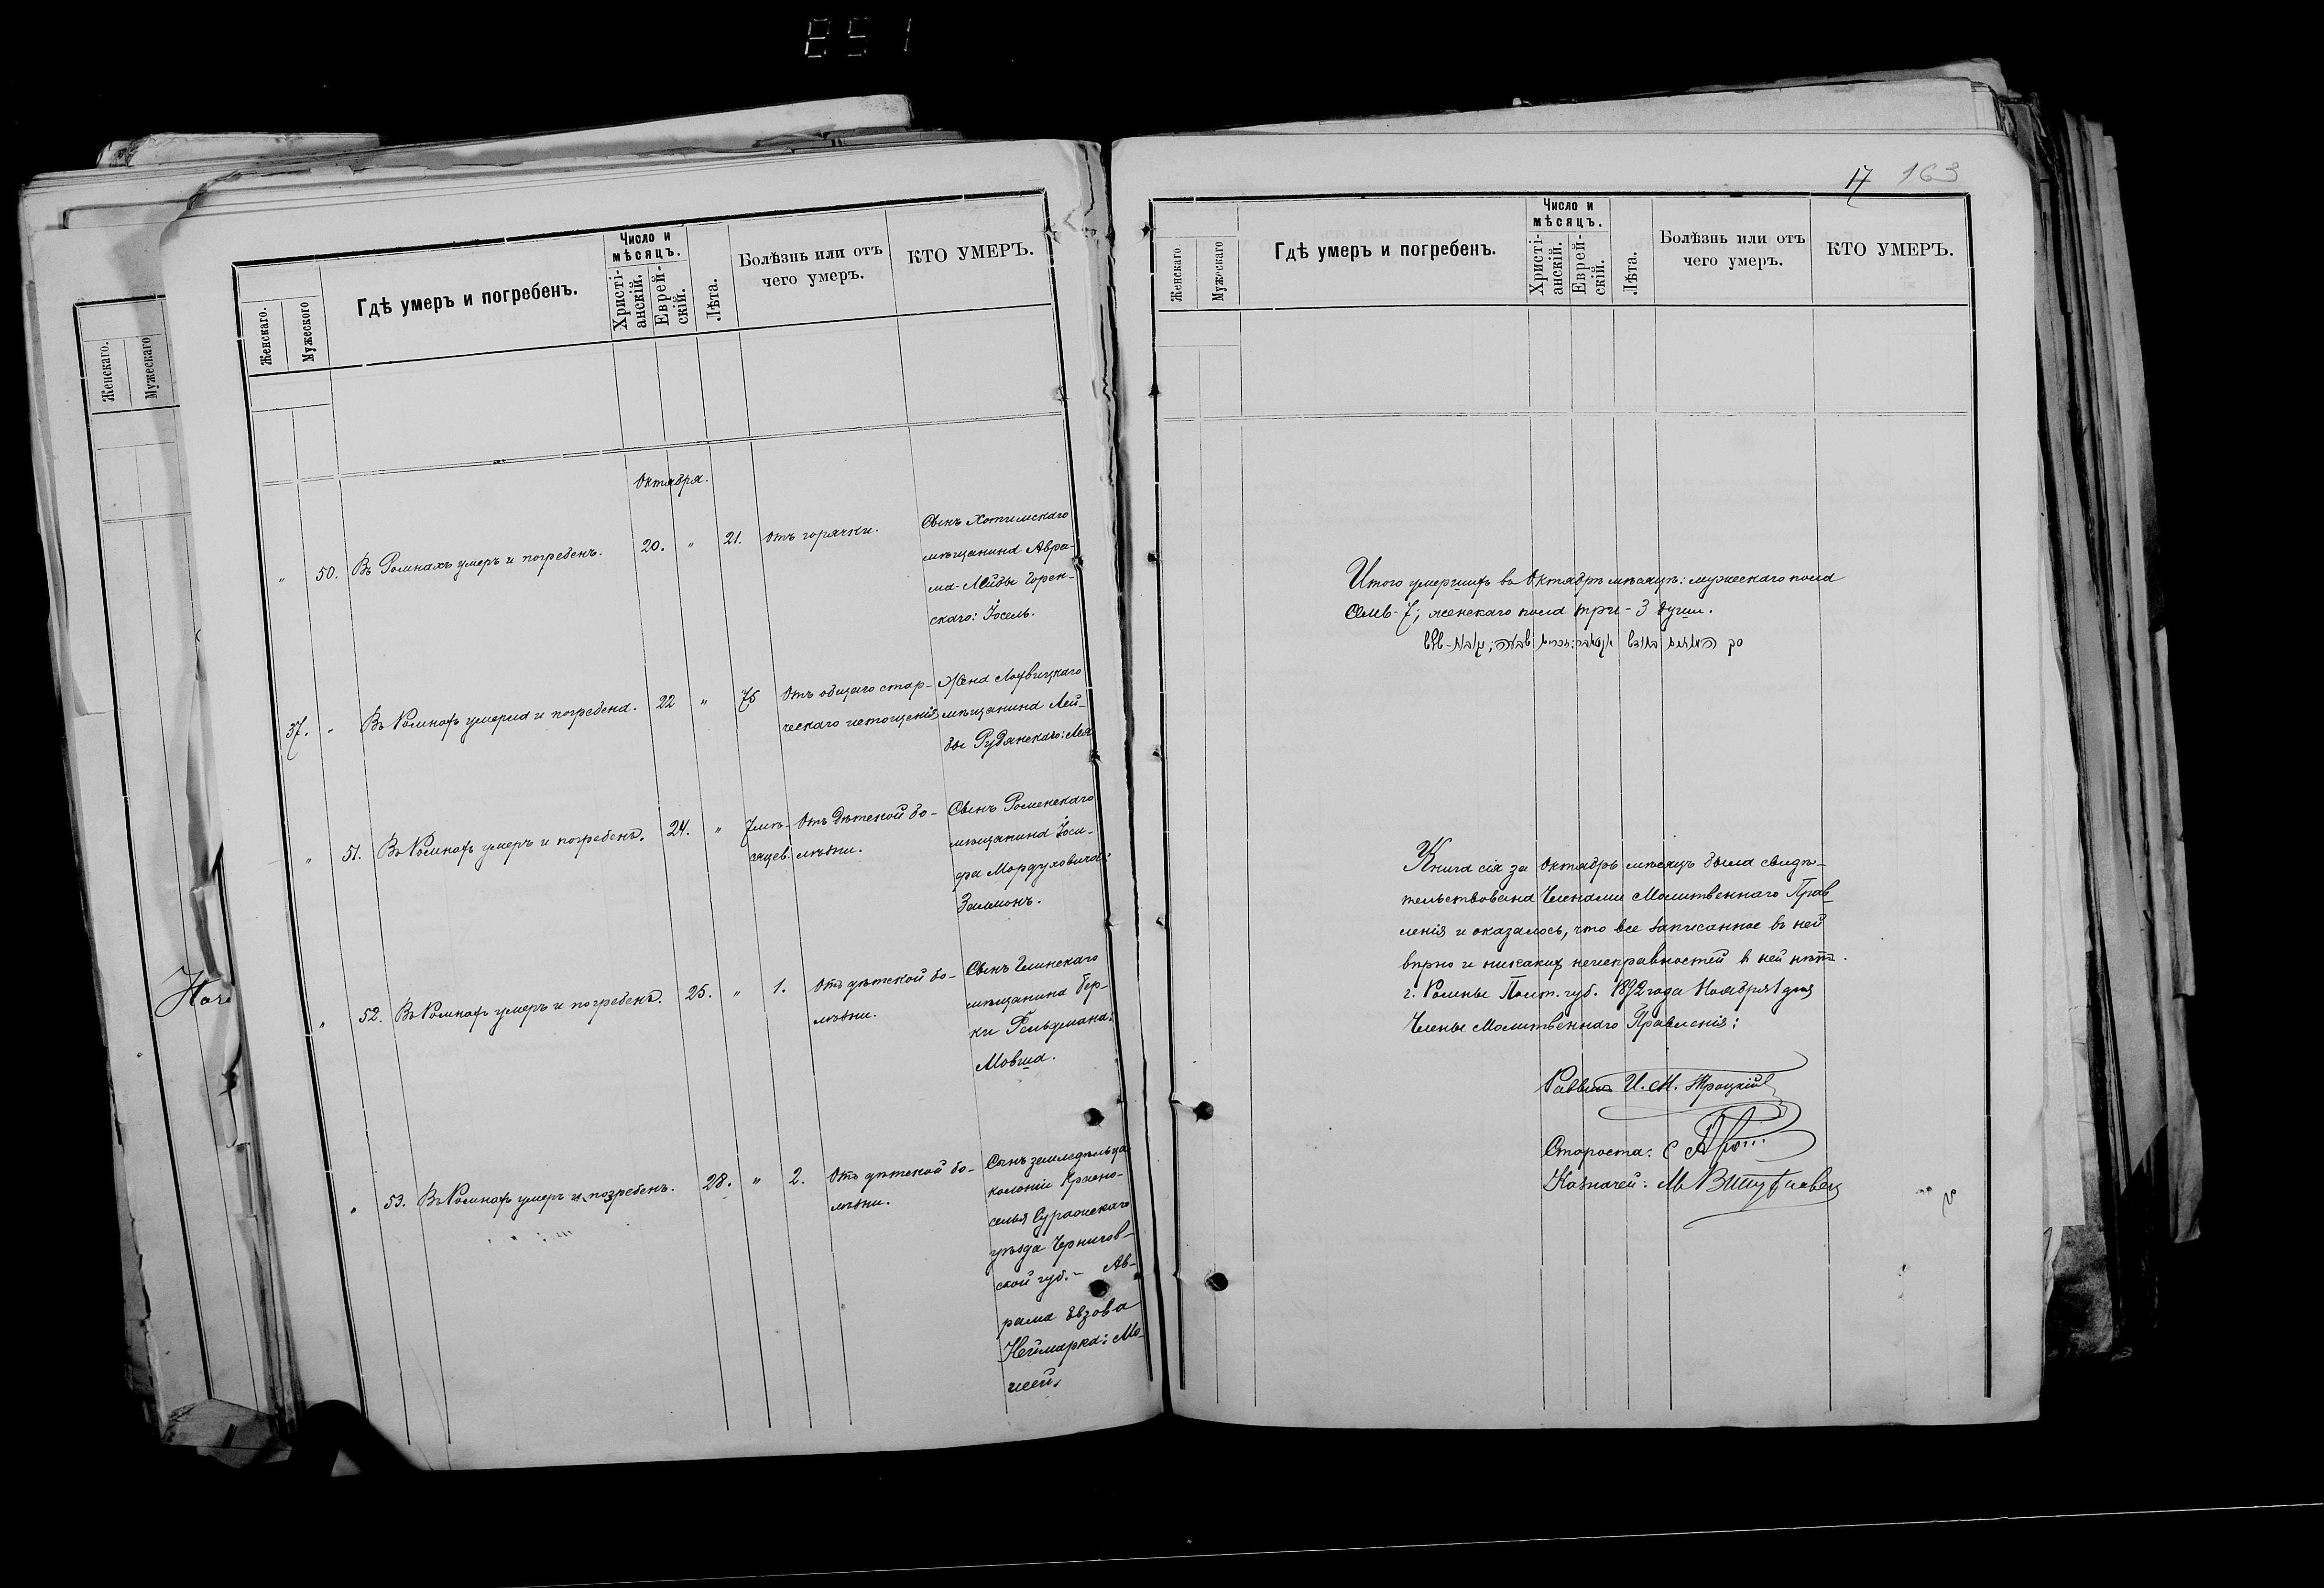 851
Женскаго.
Мужескаго
Женскаго.
Мужеского
Гдѣ умеръ и погребенъ.
Число и мѣсяцъ.
Христіанскій.
Еврейскій.
Лѣта.
Болѣзнь или отъ чего умеръ.
КТО УМЕРЪ.
Октября.
" 50. Въ Ромнахъ умеръ и погребенъ. 20. " 21. Отъ горячки. Сынъ Хотимскаго
мѣщанина Авра-
ма-Лейбы Горен-
скаго: Іосель.
37. " Въ Ромнахъ умерла и погребена. 22 " 75 Отъ общаго стар- Жена Лохвицкаго
ческаго истощенія мѣщанина Лей-
бы Рудянскаго: Лея
" 51. Въ Ромнахъ умеръ и погребенъ. 24. " 7 мѣ- Отъ дѣтской бо- Сынъ Роменскаго
сяцев. лѣзни. мѣщанина Іоси-
фа Мордуховича:
Залмонъ.
" 52. Въ Ромнахъ умеръ и погребенъ. 25. " 1. Отъ дѣтской бо- Сынъ Глинскаго
лѣзни. мѣщанина Бер-
ки Фельдмана:
Мовша.
" 53. Въ Ромнахъ умеръ и погребенъ. 28. " 2. Отъ дѣтской бо- Сынъ земледѣльца
лѣзни. колоніи Красно-
селья Суражскаго
уѣзда Чернигов-
ской губ. - Ав-
рама Евзова
Неймарка: Мо-
исей.
17 163
Женскаго
Мужескаго
Гдѣ умеръ и погребенъ.
Число и мѣсяцъ.
Христіанскій.
Еврейскій.
Лѣта.
Болѣзнь или отъ чего умеръ.
КТО УМЕРЪ.
Итого умершихъ въ Октябрѣ мѣсяцѣ: мужескаго пола
семь - 7; женскаго пола три - 3 души.
Книга сія за Октябрь мѣсяцъ была свидѣ-
тельствована Членами Молитвеннаго Прав-
ленія и оказалось, что все записанное въ ней
вѣрно и никакихъ неисправностей въ ней нѣтъ.
г. Ромны Полт. губ. 1892 года Ноября 1 дня
Члены Молитвеннаго Правленія:
Раввинъ И. М. Троцкій
Староста:
Казначей: М